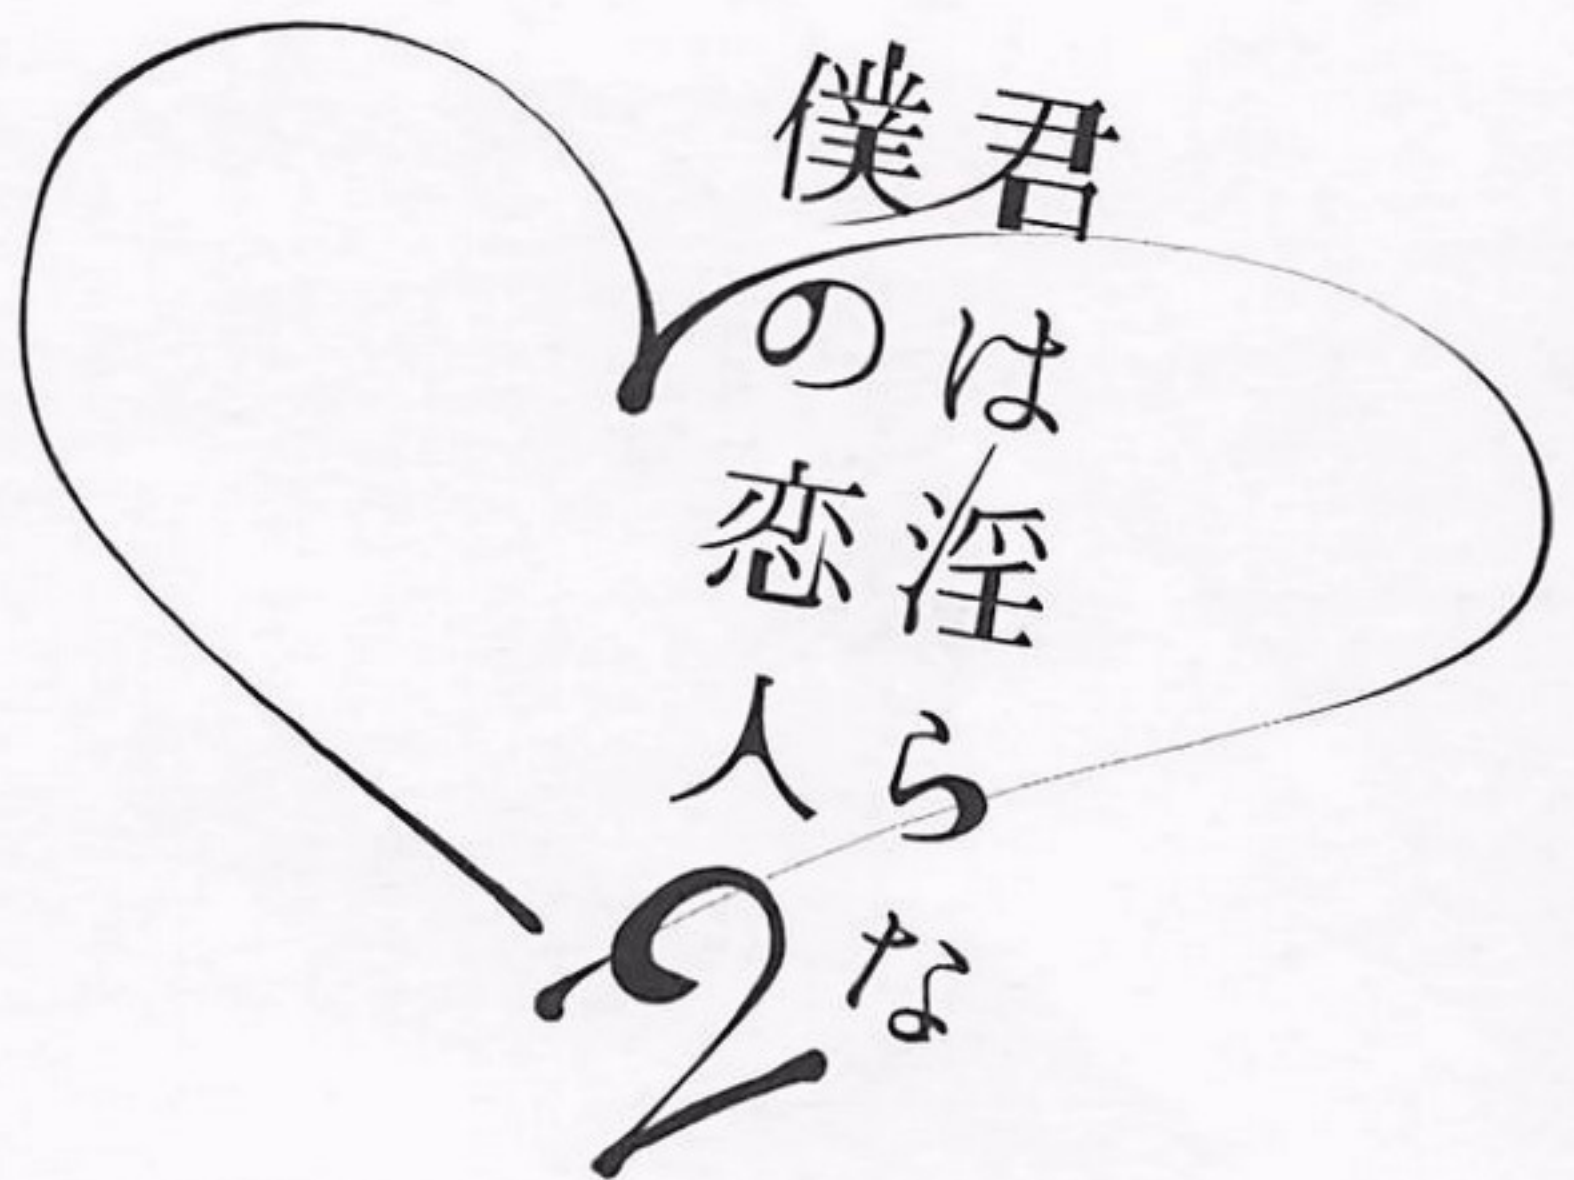 君は淫らな
僕の恋人2